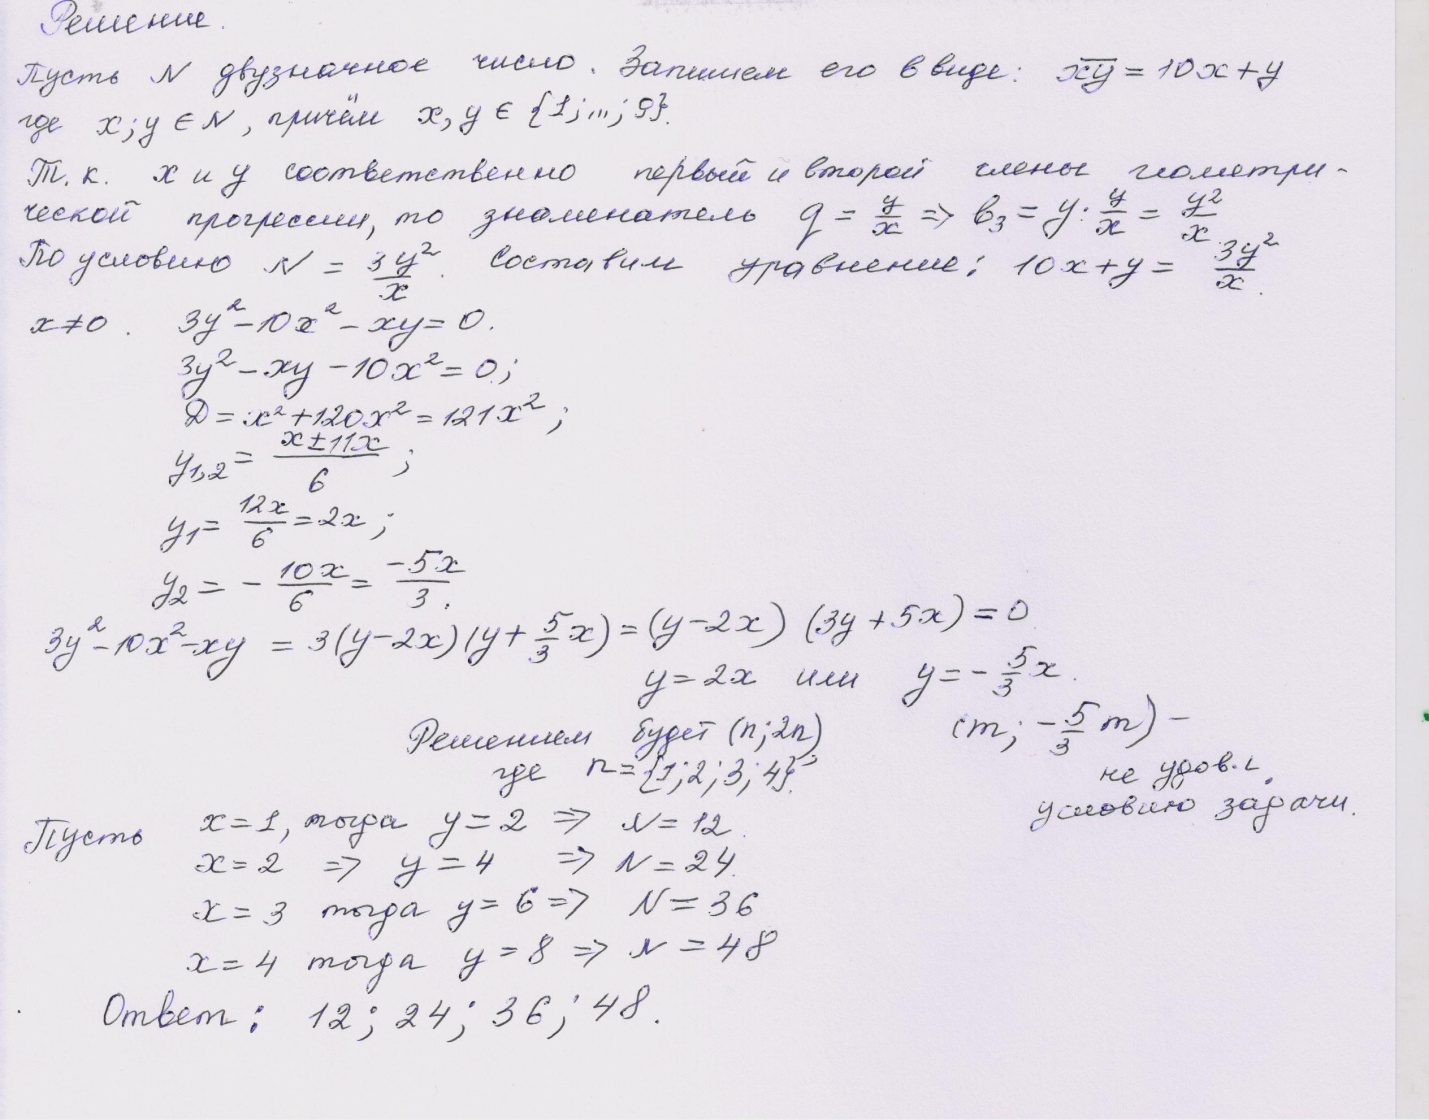 Решение.
Пусть N двузначное число. Запишем его в виде: xy = 10x + y
где x; y ∈ N, причём x, y ∈ {1; ...; 9}.
Т.к. x и y соответственно первый и второй члены геометри-
ческой прогрессии, то знаменатель q = y/x => b₃ = y · y/x = y²/x
По условию N = 3y²/x. Составим уравнение: 10x + y = 3y²/x.
x ≠ 0. 3y² - 10x² - xy = 0.
3y² - xy - 10x² = 0;
D = x² + 120x² = 121x²;
y₁,₂ = (x ± 11x)/6;
y₁ = 12x/6 = 2x;
y₂ = - 10x/6 = -5x/3.
3y² - 10x² - xy = 3(y - 2x)(y + 5/3 x) = (y - 2x) (3y + 5x) = 0
y = 2x или y = - 5/3 x.
Решением будет (n; 2n) (m; - 5/3 m) -
где n = {1; 2; 3; 4}. не удов.
условию задачи.
Пусть x = 1, тогда y = 2 => N = 12.
x = 2 => y = 4 => N = 24.
x = 3 тогда y = 6 => N = 36
x = 4 тогда y = 8 => N = 48
Ответ: 12; 24; 36; 48.